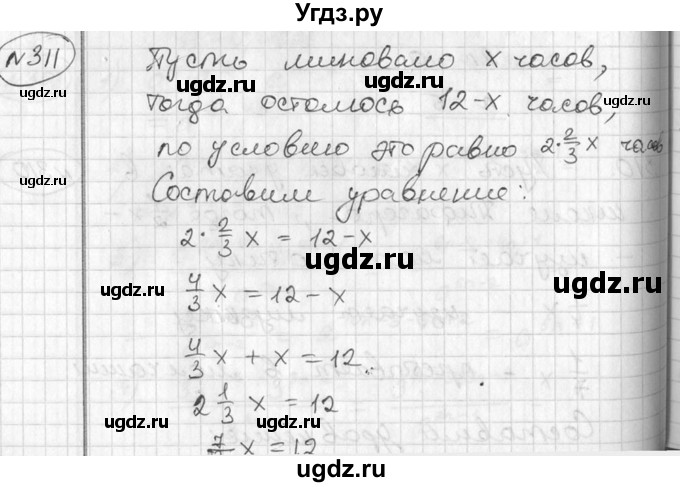 Угдз.ру
№311
Пусть миновало x часов,
тогда осталось 12-x часов,
по условию это равно 2·2/3 x часов
Составим уравнение:
2·2/3 x = 12-x
4/3 x = 12-x
4/3 x + x = 12
2 1/3 x = 12
7/3 x = 12
ugdz.ru
ugdz.ru
ugdz.ru
ugdz.ru
ugdz.ru
ugdz.ru
ugdz.ru
ugdz.ru
ugdz.ru
ugdz.ru
ugdz.ru
ugdz.ru
ugdz.ru